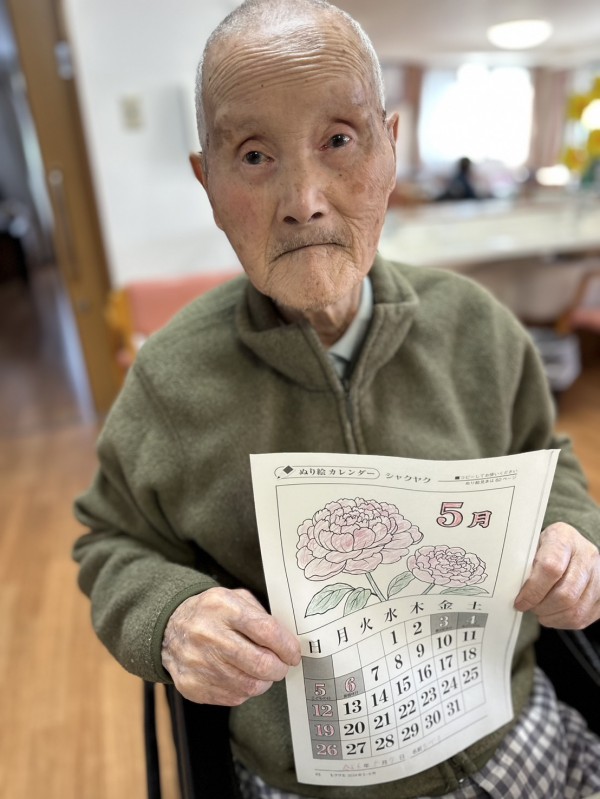 ぬり絵カレンダー シャクヤク
■コピーしてお使いください
5月
日 月 火 水 木 金 土
1 2 3 4
5 6 7 8 9 10 11
12 13 14 15 16 17 18
19 20 21 22 23 24 25
26 27 28 29 30 31